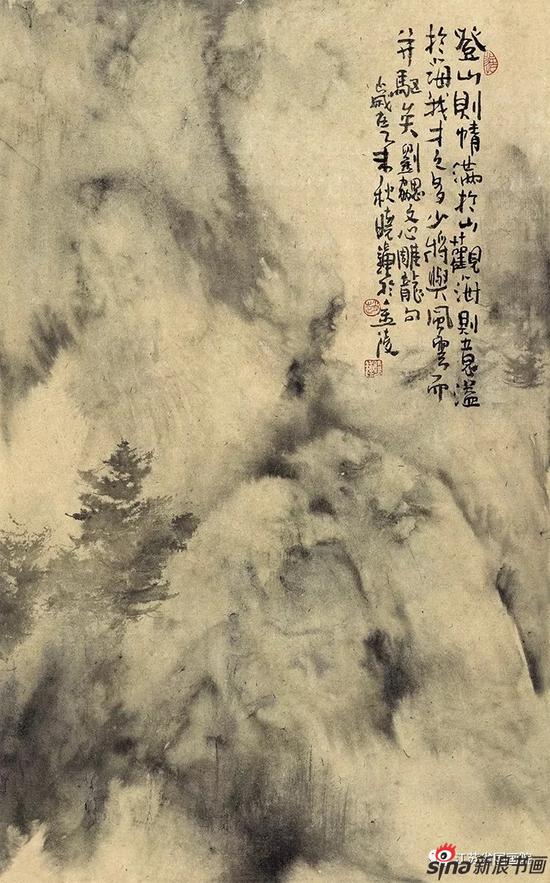 登山則情滿於山觀海則意溢
於海我才之多少將與風雲而
并驅矣劉勰文心雕龍句
歲在乙未秋曉於金陵
江苏省国画院
sina新浪书画